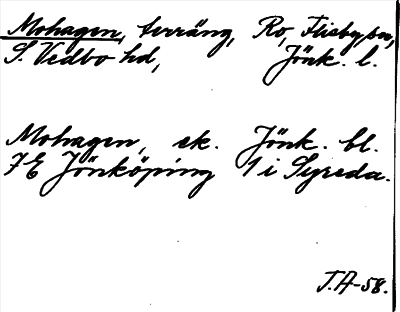 Mohagen, terräng, Ro, Flisby sn,
S. Vedbo hd, Jönk. l.
Mohagen, ek. Jönk. bl.
7E Jönköping 1 i Syreda.
J.A-58.